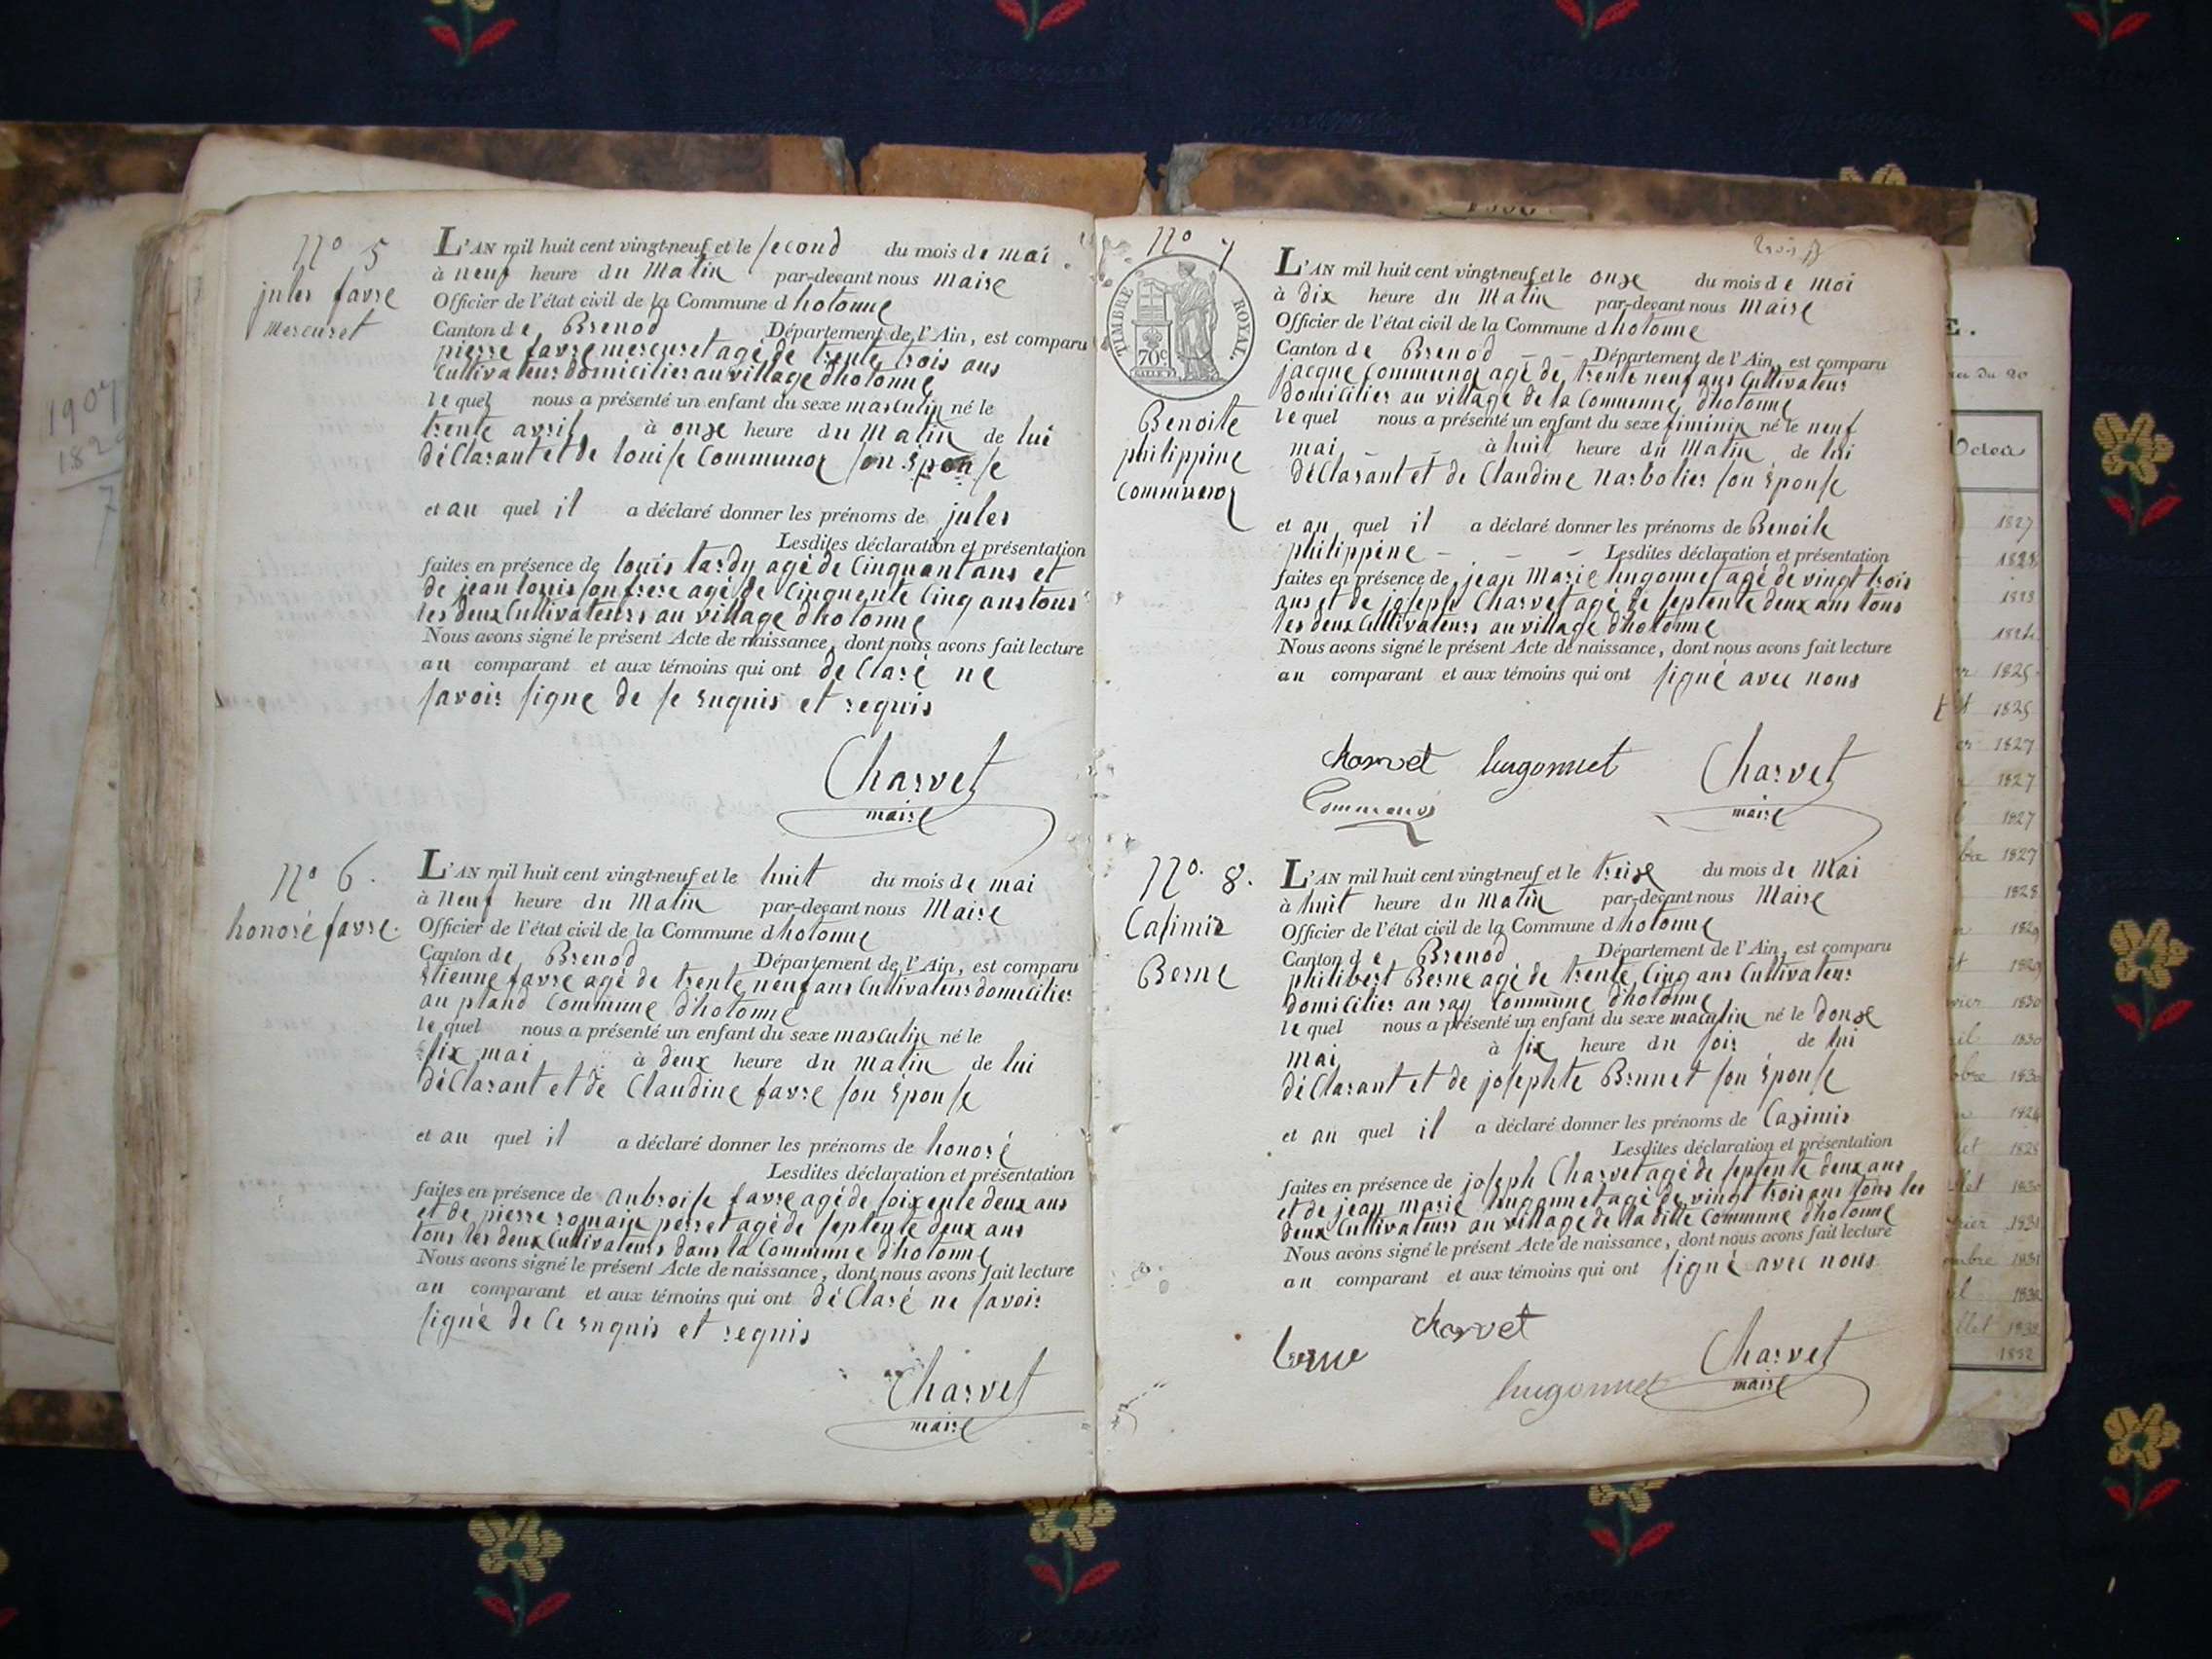 N° 5
jules favre
mercuret
L'AN mil huit cent vingt-neuf et le second du mois de mai
à neuf heure du Matin par-devant nous Maire
Officier de l'état civil de la Commune d hotonne
Canton de Brenod Département de l'Ain, est comparu
pierre favre mercuret agé de trente trois ans
Cultivateur domicilier au village d'hotonne
lequel nous a présenté un enfant du sexe masculin né le
trente avril à onze heure du Matin de lui
déClarant et de louise Communoz son Epouse
et au quel il a déclaré donner les prénoms de jules
Lesdites déclaration et présentation
faites en présence de louis tardy agé de Cinquant ans et
de jean louis son frere agé de Cinquente Cinq ans tous
les deux Cultivateurs au village d'hotonne
Nous avons signé le présent Acte de naissance, dont nous avons fait lecture
au comparant et aux témoins qui ont de Claré ne
savoir signe de se enquis et requis
Charvet
maire
N° 6.
honoré favre.
L'AN mil huit cent vingt-neuf et le huit du mois de mai
à Neuf heure du Matin par-devant nous Maire
Officier de l'état civil de la Commune d hotonne
Canton de Brenod Département de l'Ain, est comparu
Etienne favre agé de trente neuf ans Cultivateur domicilier
au pland Commune d'hotonne
lequel nous a présenté un enfant du sexe masculin né le
six mai à deux heure du matin de lui
déClarant et de Claudine favre son Epouse
et au quel il a déclaré donner les prénoms de honoré
Lesdites déclaration et présentation
faites en présence de anbroise favre agé de soixente deux ans
et de pierre romain perret agé de septente deux ans
tous les deux Cultivateurs dans la Commune d'hotonne
Nous avons signé le présent Acte de naissance, dont nous avons fait lecture
au comparant et aux témoins qui ont déClaré ne savoir
signé de Ce enquis et requis
Charvet
maire
N° 7
TIMBRE ROYAL.
70c
Benoite
philippine
Communoz
L'AN mil huit cent vingt-neuf et le onze du mois de moi
à dix heure du Matin par-devant nous Maire
Officier de l'état civil de la Commune d hotonne
Canton de Brenod - - Département de l'Ain, est comparu
jacque Communoz agé de trente neuf ans Cultivateur
domicilier au village de la Commune d'hotonne
lequel nous a présenté un enfant du sexe fiminin né le neuf
mai - - à huit heure du Matin de lui
déClarant et de Claudine Narbolier son Epouse
et au quel il a déclaré donner les prénoms de Benoite
philippine - - - Lesdites déclaration et présentation
faites en présence de jean Marie hugonnet agé de vingt trois
ans et de joseph Charvet agé de septente deux ans tous
les deux Cultivateurs au village d'hotonne
Nous avons signé le présent Acte de naissance, dont nous avons fait lecture
au comparant et aux témoins qui ont signé avec nous
charvet hugonnet Charvet
Communoz maire
N° 8.
Casimir
Berne
L'AN mil huit cent vingt-neuf et le treize du mois de Mai
à huit heure du Matin par-devant nous Maire
Officier de l'état civil de la Commune d hotonne
Canton de Brenod Département de l'Ain, est comparu
philibert Berne agé de trente Cinq ans Cultivateur
domicilier au ray Commune d'hotonne
lequel nous a présenté un enfant du sexe maculin né le douze
mai à six heure du soir de lui
déClarant et de josephte Brunet son Epouse
et au quel il a déclaré donner les prénoms de Cazimir
Lesdites déclaration et présentation
faites en présence de joseph Charvet agé de septente deux ans
et de jean marie hugonnet agé de vingt trois ans tous les
deux Cultivateurs au village de la ditte Commune d'hotonne
Nous avons signé le présent Acte de naissance, dont nous avons fait lecture
au comparant et aux témoins qui ont signé avec nous
berne charvet Charvet
hugonnet maire
1907
1829
E.
1827
1823
1825
1825
1827
1827
1827
1827
1828
1829
1829
1830
1830
1830
1828
1830
1831
1831
1832
1832
1832